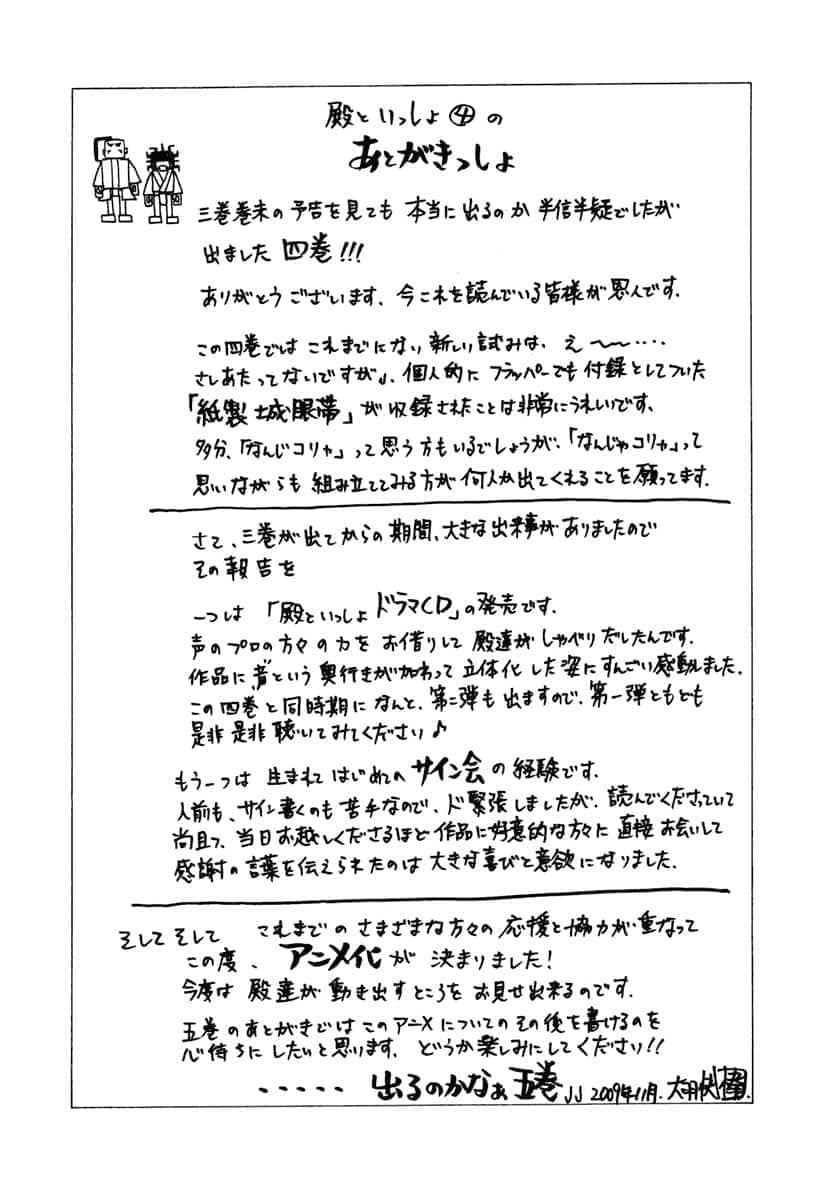 殿といっしょ④の
あとがきっしょ
三巻巻末の予告を見ても 本当に出るのか 半信半疑でしたが
出ました 四巻!!!
ありがとうございます、今これを読んでいる皆様が恩人です.
この四巻では これまでにない 新しい試みは、え〜〜‥‥
さしあたってないですが」、個人的に フラッパーでも 付録としてついた
「紙製城眼帯」が収録されたことは非常にうれしいです、
多分、「なんじコリャ」って思う方もいるでしょうが、「なんじゃコリャ」って
思いながらも 組み立ててみる方が 何人か出てくれることを願ってます.
さて、三巻が出てからの期間、大きな出来事がありましたので
その報告を
一つは 「殿といっしょ ドラマCD」の発売です.
声のプロの方々の力を お借りして 殿達が しゃべりだしたんです.
作品に "音"という奥行きが加わって 立体化した姿に すんごい感動しました.
この四巻と同時期に なんと、第二弾も 出ますので、第一弾ともども
是非 是非 聴いてみてください♪
もう一つは 生まれて はじめての サイン会 の 経験です.
人前も、サイン書くのも 苦手なので、ド緊張しましたが、読んでくださっていて
尚且つ、当日お越しくださるほど 作品に好意的な方々に 直接お会いして
感謝の言葉を伝えられたのは 大きな喜びと意欲になりました.
そして そして これまでの さまざまな方々の 応援と協力が重なって
この度、 アニメ化が 決まりました!
今度は 殿達が 動き出すところを お見せ出来るのです.
五巻のあとがきでは このアニメについての その後を書けるのを
心待ちに したいと思います. どうか楽しみにしてください!!
‐‐‐‐‐ 出るのかなぁ五巻 」」 2009年11月.